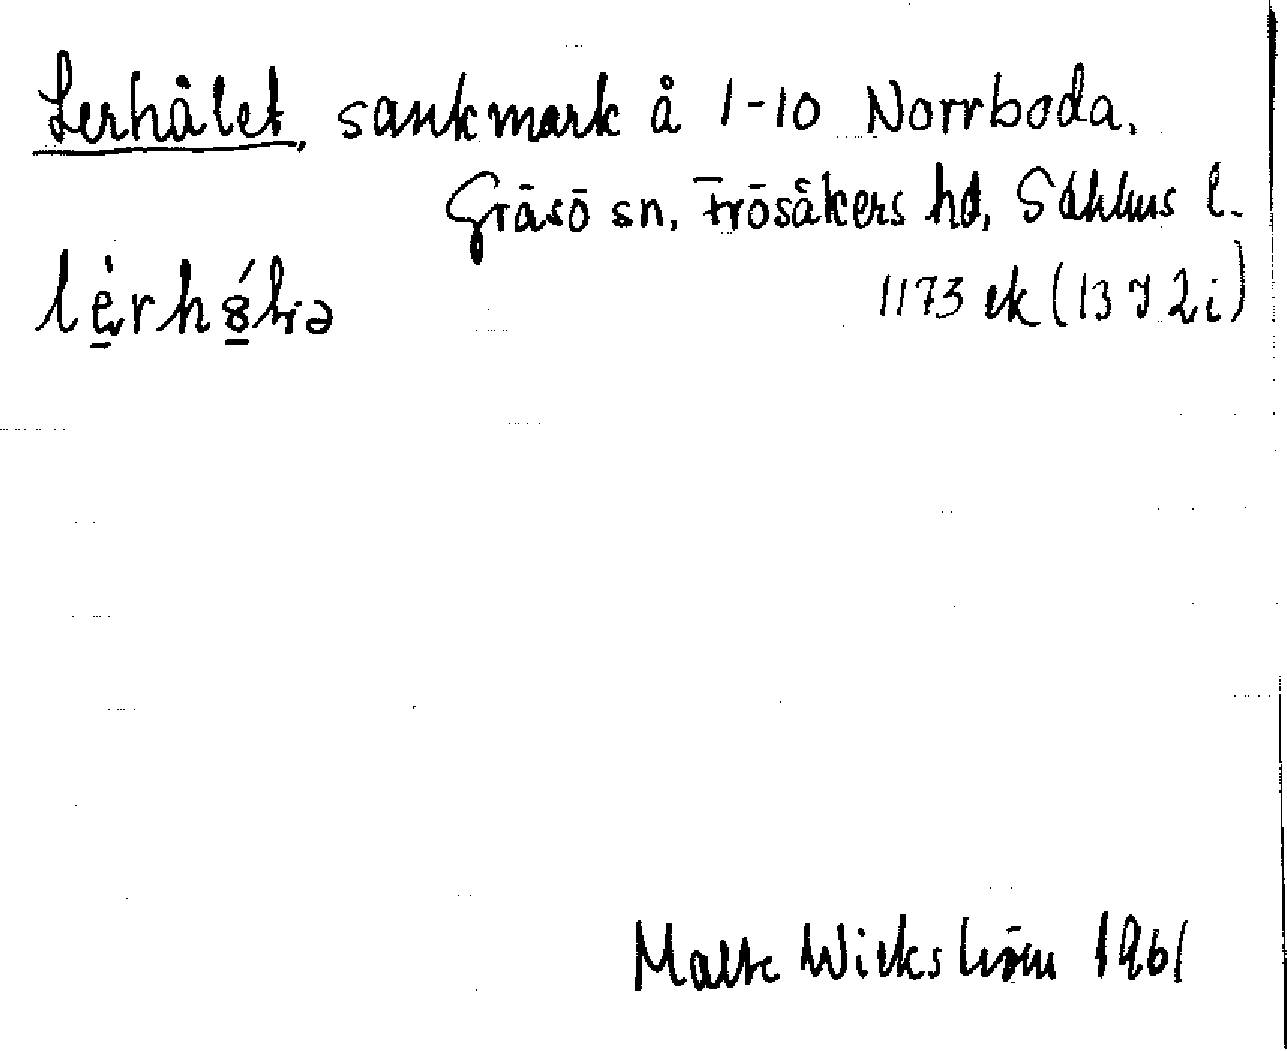 Lerhålet, sankmark å 1-10 Norrboda,
Gräsö sn, Frösåkers hd, Sthlms l.
1173 ek (13 I 2i)
Malte Wickström 1961